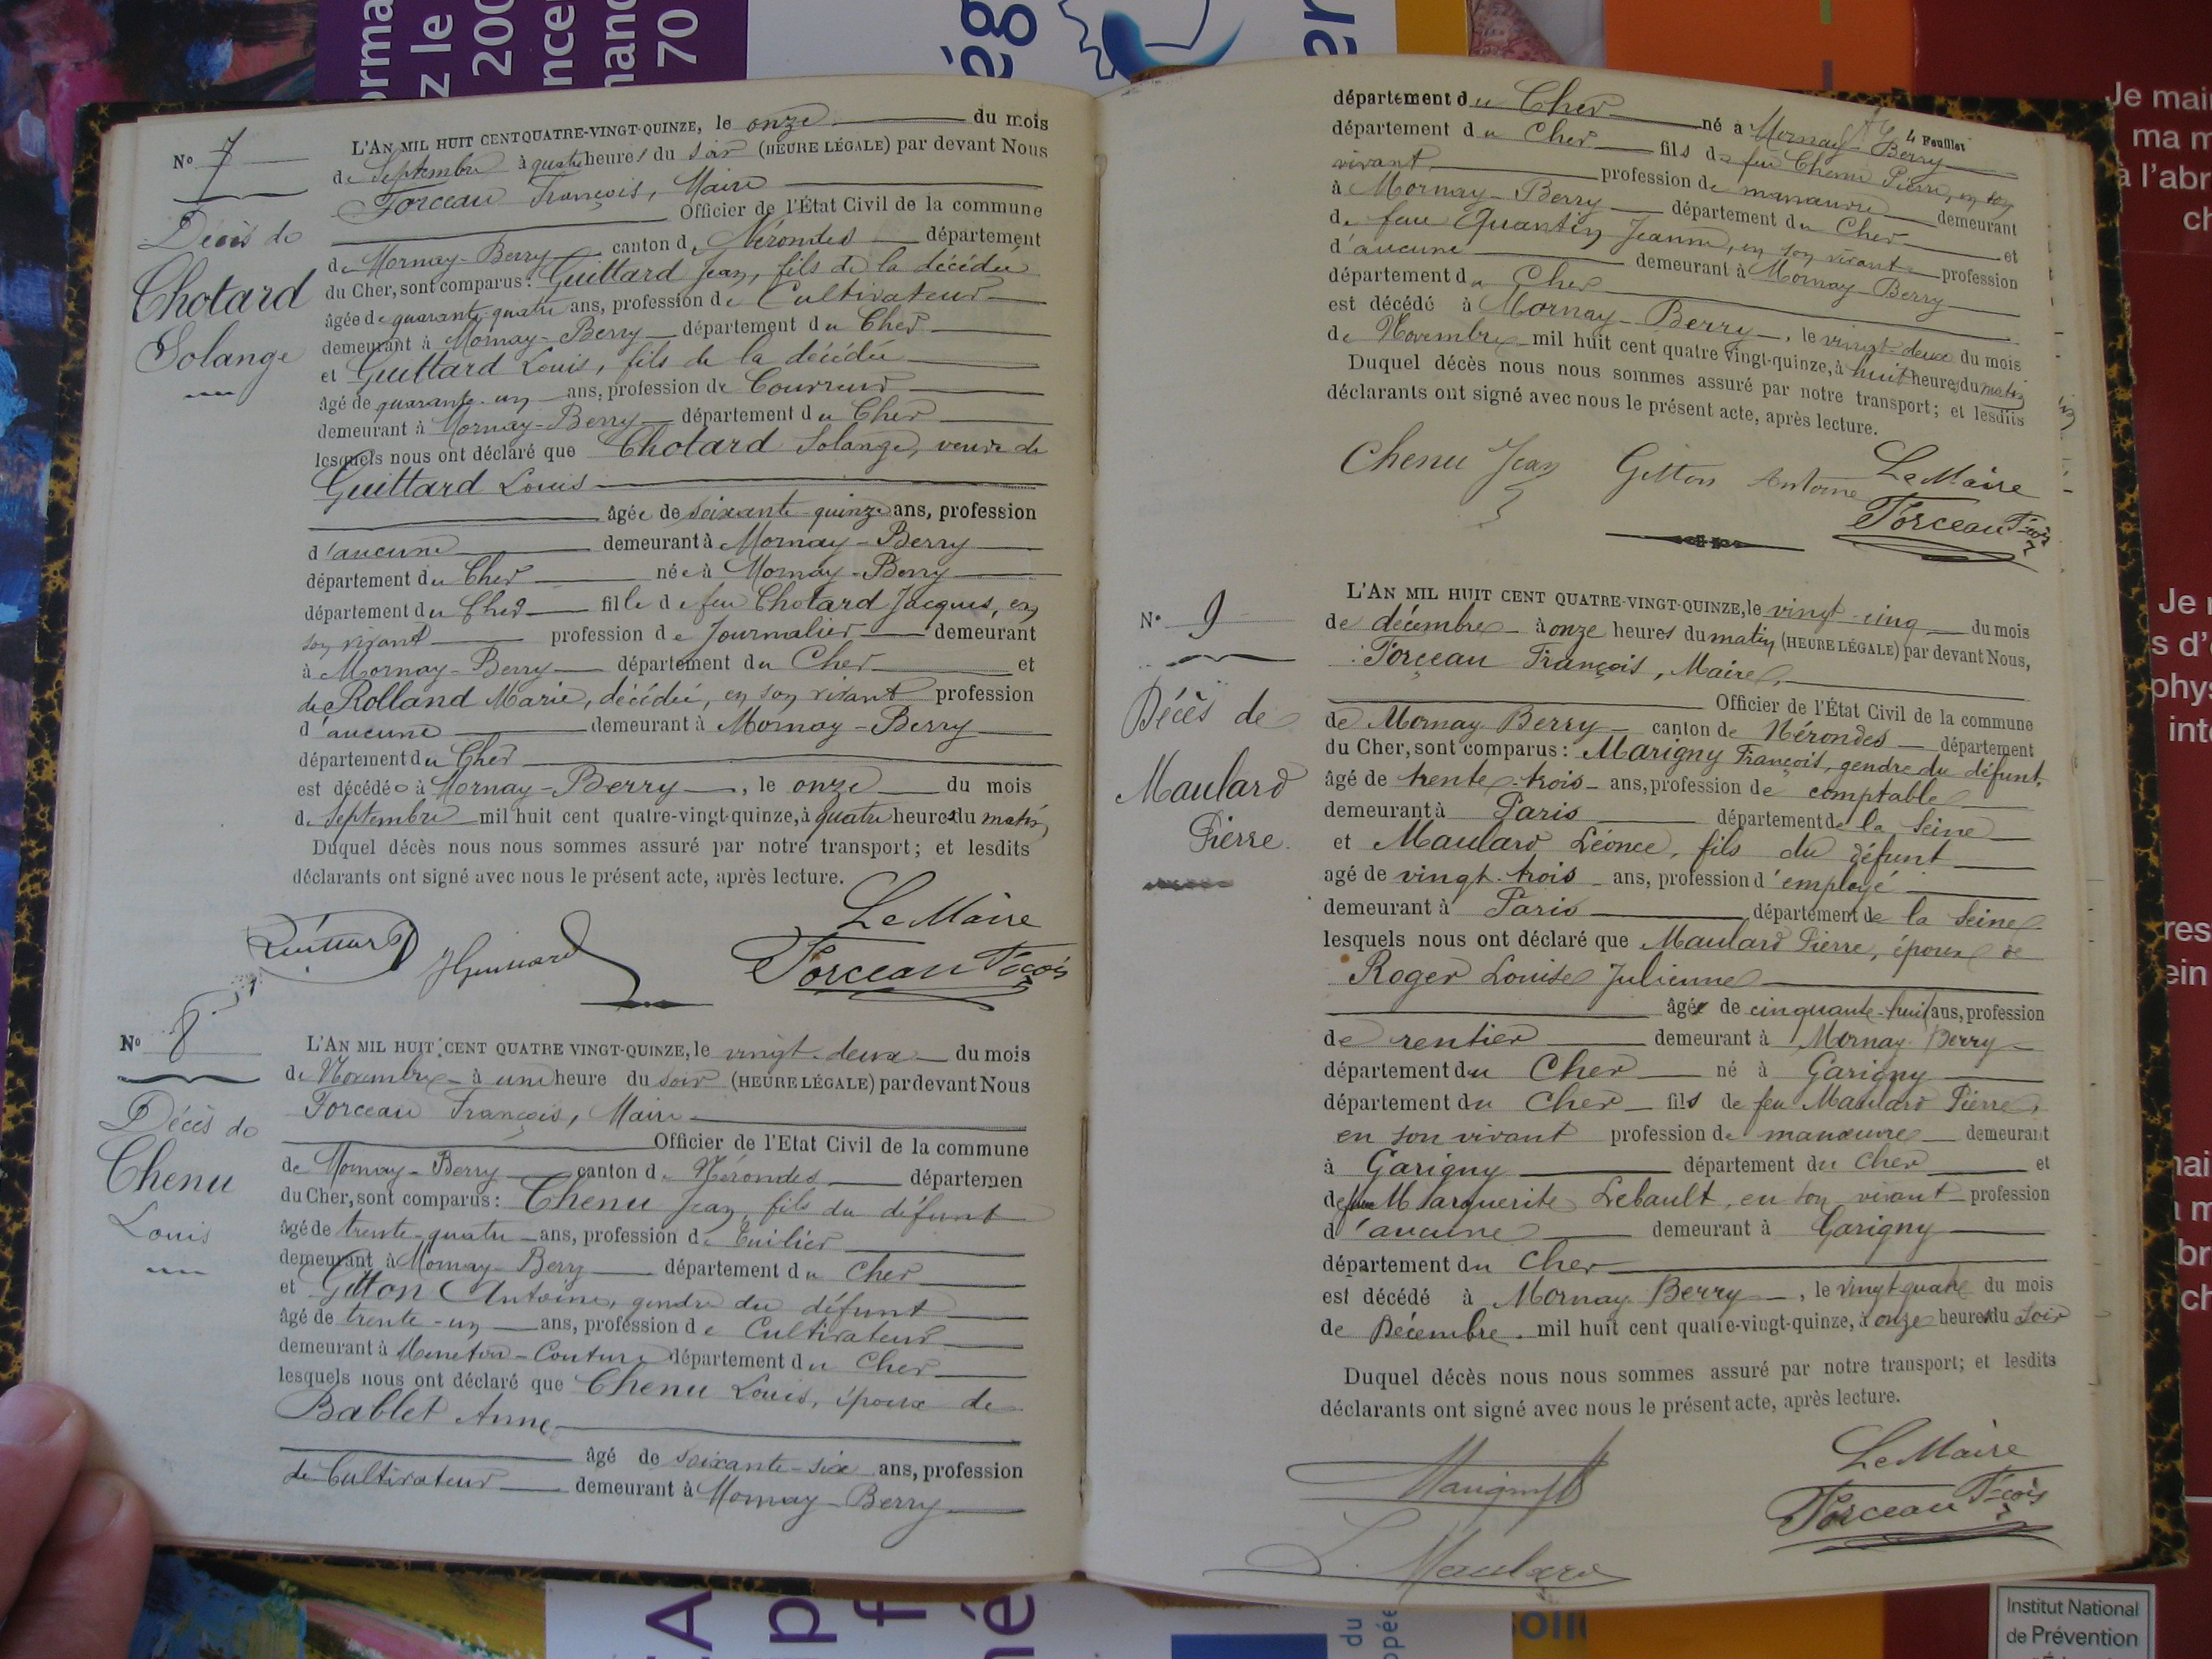 N° 7
Décès de
Chotard
Solange
L'AN MIL HUIT CENT QUATRE-VINGT-QUINZE, le onze du mois
de Septembre à quatre heures du soir (HEURE LÉGALE) par devant Nous
Forceau François, Maire
Officier de l'État Civil de la commune
de Mornay-Berry canton de Nérondes département
du Cher, sont comparus: Guittard Jean, fils de la décédée
âgée de quarante-quatre ans, profession de Cultivateur
demeurant à Mornay-Berry département du Cher
et Guittard Louis, fils de la décédée
âgé de quarante-un ans, profession de Couvreur
demeurant à Mornay-Berry département du Cher
lesquels nous ont déclaré que Chotard Solange, veuve de
Guittard Louis
âgée de soixante-quinze ans, profession
d'aucune demeurant à Mornay-Berry
département du Cher née à Mornay-Berry
département du Cher fille de feu Chotard Jacques, en
son vivant profession de Journalier demeurant
à Mornay-Berry département du Cher et
de Rolland Marie, décédée, en son vivant profession
d'aucune demeurant à Mornay-Berry
département du Cher
est décédée à Mornay-Berry, le onze du mois
de Septembre mil huit cent quatre-vingt-quinze, à quatre heures du matin
Duquel décès nous nous sommes assuré par notre transport; et lesdits
déclarants ont signé avec nous le présent acte, après lecture.
Le Maire
Guittard JGuittard Forceau Fçois
N° 8
Décès de
Chenu
Louis
L'AN MIL HUIT CENT QUATRE VINGT-QUINZE, le vingt-deux du mois
de Novembre à une heure du soir (HEURE LÉGALE) par devant Nous
Forceau François, Maire
Officier de l'Etat Civil de la commune
de Mornay-Berry canton de Nérondes départemen
du Cher, sont comparus: Chenu Jean, fils du défunt
âgé de trente-quatre ans, profession de Tuilier
demeurant à Mornay-Berry département du Cher
et Gitton Antoine, gendre du défunt
âgé de trente-un ans, profession de Cultivateur
demeurant à Menetou-Couture département du Cher
lesquels nous ont déclaré que Chenu Louis, époux de
Bablet Anne
âgé de soixante-six ans, profession
de Cultivateur demeurant à Mornay-Berry
4 Feuillet
département du Cher né à Mornay-Berry
département du Cher fils de feu Chenu Pierre, en son
vivant profession de manœuvre demeurant
à Mornay-Berry département du Cher et
de feue Quantin Jeanne, en son vivant profession
d'aucune demeurant à Mornay-Berry
département du Cher
est décédé à Mornay-Berry, le vingt-deux du mois
de Novembre mil huit cent quatre vingt-quinze, à huit heures du matin
Duquel décès nous nous sommes assuré par notre transport; et lesdits
déclarants ont signé avec nous le présent acte, après lecture.
Chenu Jean Gitton Antoine Le Maire
Forceau Fçois
N° 9
Décès de
Maulard
Pierre.
L'AN MIL HUIT CENT QUATRE-VINGT-QUINZE, le vingt-cinq du mois
de décembre à onze heures du matin (HEURE LÉGALE) par devant Nous,
Forceau François, Maire,
Officier de l'État Civil de la commune
de Mornay Berry canton de Nérondes département
du Cher, sont comparus: Marigny François, gendre du défunt,
âgé de trente-trois ans, profession de comptable
demeurant à Paris département de la Seine
et Maulard Léonce, fils du défunt
agé de vingt-trois ans, profession d'employé
demeurant à Paris département de la Seine
lesquels nous ont déclaré que Maulard Pierre, époux de
Roger Louise Julienne
âgé de cinquante-huit ans, profession
de rentier demeurant à Mornay-Berry
département du Cher né à Garigny
département du Cher fils de feu Maulard Pierre,
en son vivant profession de manœuvre demeurant
à Garigny département du Cher et
de feue Marguerite Lebault, en son vivant profession
d'aucune demeurant à Garigny
département du Cher
est décédé à Mornay Berry, le vingt-quatre du mois
de Décembre mil huit cent quatre-vingt-quinze, à onze heures du soir
Duquel décès nous nous sommes assuré par notre transport; et lesdits
déclarants ont signé avec nous le présent acte, après lecture.
Marigny Le Maire
L. Maulard Forceau Fçois
Je mai
ma m
à l'abr
ch
Institut National
de Prévention